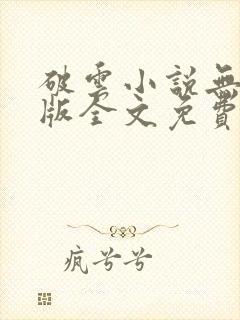 破雲小說無
版全文免費
疯兮兮